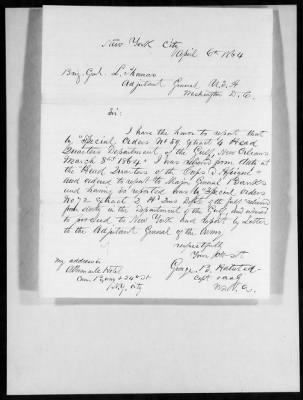 New York City
April 6th 1864
Brig Genl L. Thomas
Adjutant General U.S.A
Washington D.C.
Sir:
I have the honor to report that
by "Special Orders No 59, Extract 4 Head
Quarters Department of the Gulf, New Orleans
March 8th 1864" I was relieved from duty at
the Head Quarters of the Corps d'Afrique
and ordered to report to Major General Banks
and having so reported was by Special Orders
No 72 Extract 2 Hd Qrs Dept of the Gulf relieved
from duty in the Department of the Gulf, and ordered
to proceed to New York and report by letter
to the Adjutant General of the Army
respectfully
Your obt St
George B. Halsted
Capt
My address is
Albemarle Hotel
Cor. &  24th St
N.Y. City